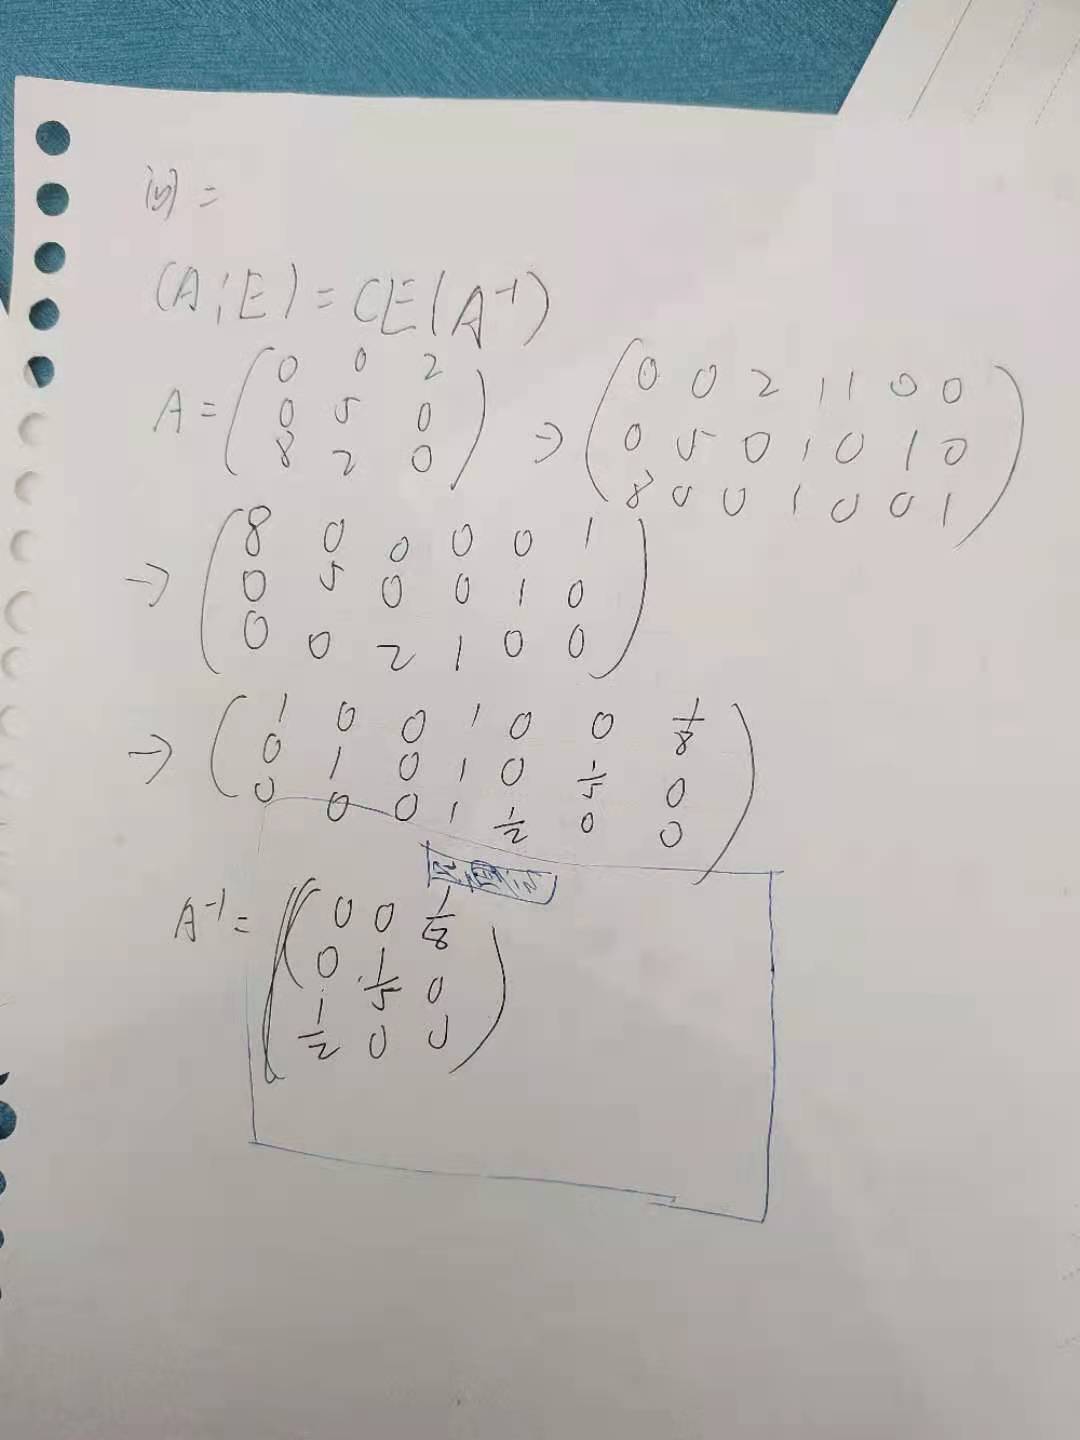 问=
(A¦E)=(E|A⁻¹)
A=(0 0 2 → (0 0 2 | 1 0 0
0 5 0 0 5 0 | 0 1 0
8 2 0) 8 0 0 | 0 0 1)
→ (8 0 0 0 0 1
0 5 0 0 1 0
0 0 2 1 0 0)
→ (1 0 0 | 0 0 1/8
0 1 0 | 0 1/5 0
0 0 0 | 1/2 0 0)
A⁻¹=(0 0 1/8
0 1/5 0
1/2 0 0)